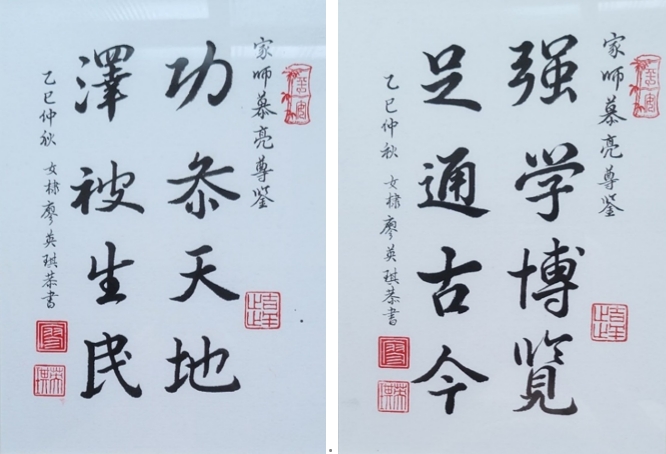 家师慕亮尊鉴
功叅天地
澤被生民
乙巳仲秋 女棣廖英琪恭书
家师慕亮尊鉴
强学博览
足通古今
乙巳仲秋 女棣廖英琪恭书